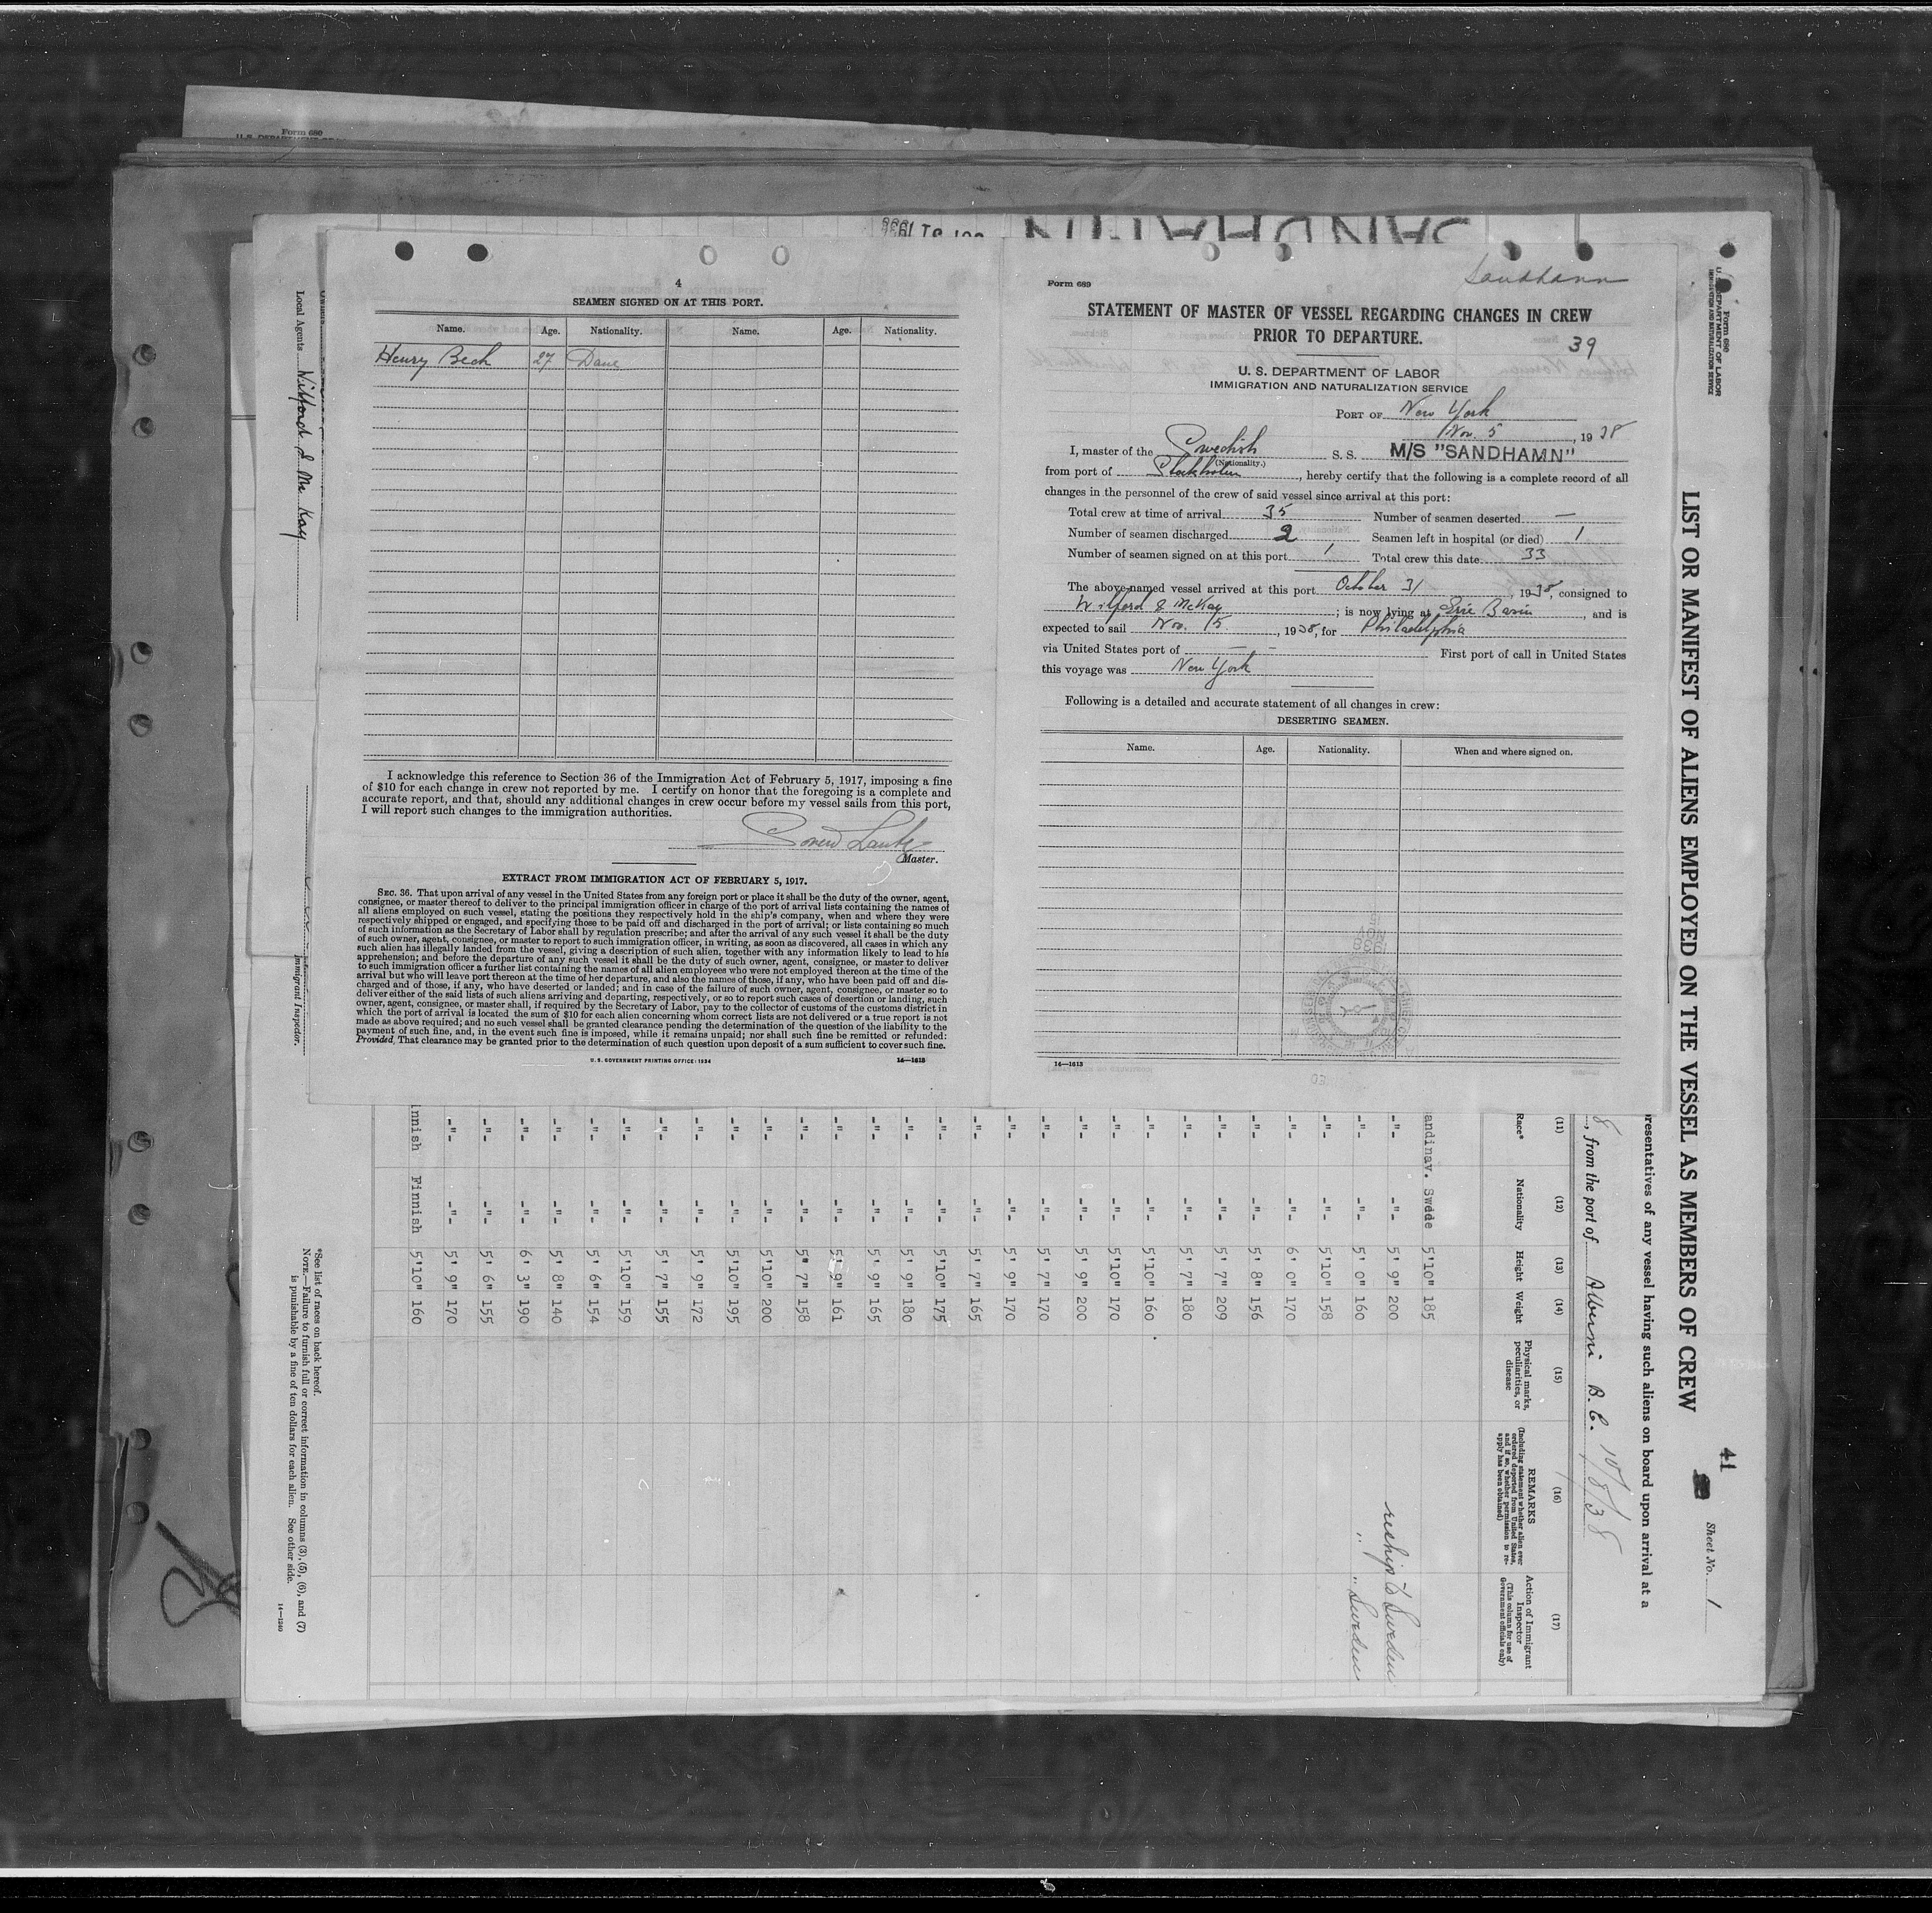 Form 680
4
SEAMEN SIGNED ON AT THIS PORT.
Name. Age. Nationality. Name. Age. Nationality.
Henry Bech 27 Dane
I acknowledge this reference to Section 36 of the Immigration Act of February 5, 1917, imposing a fine
of $10 for each change in crew not reported by me. I certify on honor that the foregoing is a complete and
accurate report, and that, should any additional changes in crew occur before my vessel sails from this port,
I will report such changes to the immigration authorities.
Master.
EXTRACT FROM IMMIGRATION ACT OF FEBRUARY 5, 1917.
SEC. 36. That upon arrival of any vessel in the United States from any foreign port or place it shall be the duty of the owner, agent,
consignee, or master thereof to deliver to the principal immigration officer in charge of the port of arrival lists containing the names of
all aliens employed on such vessel, stating the positions they respectively hold in the ship's company, when and where they were
respectively shipped or engaged, and specifying those to be paid off and discharged in the port of arrival; or lists containing so much
of such information as the Secretary of Labor shall by regulation prescribe; and after the arrival of any such vessel it shall be the duty
of such owner, agent, consignee, or master to report to such immigration officer, in writing, as soon as discovered, all cases in which any
such alien has illegally landed from the vessel, giving a description of such alien, together with any information likely to lead to his
apprehension; and before the departure of any such vessel it shall be the duty of such owner, agent, consignee, or master to deliver
to such immigration officer a further list containing the names of all alien employees who were not employed thereon at the time of the
arrival but who will leave port thereon at the time of her departure, and also the names of those, if any, who have been paid off and dis-
charged and of those, if any, who have deserted or landed; and in case of the failure of such owner, agent, consignee, or master so to
deliver either of the said lists of such aliens arriving and departing, respectively, or so to report such cases of desertion or landing, such
owner, agent, consignee, or master shall, if required by the Secretary of Labor, pay to the collector of customs of the customs district in
which the port of arrival is located the sum of $10 for each alien concerning whom correct lists are not delivered or a true report is not
made as above required; and no such vessel shall be granted clearance pending the determination of the question of the liability to the
payment of such fine, and, in the event such fine is imposed, while it remains unpaid; nor shall such fine be remitted or refunded:
Provided, That clearance may be granted prior to the determination of such question upon deposit of a sum sufficient to cover such fine.
U. S. GOVERNMENT PRINTING OFFICE: 1934 14—1613
Sandhamn
Form 689
STATEMENT OF MASTER OF VESSEL REGARDING CHANGES IN CREW
PRIOR TO DEPARTURE.
39
U. S. DEPARTMENT OF LABOR
IMMIGRATION AND NATURALIZATION SERVICE
PORT OF New York
Nov. 5, 1938
I, master of the Swedish S. S. M/S "SANDHAMN"
(Nationality.)
from port of Stockholm, hereby certify that the following is a complete record of all
changes in the personnel of the crew of said vessel since arrival at this port:
Total crew at time of arrival 35 Number of seamen deserted —
Number of seamen discharged 2 Seamen left in hospital (or died) 1
Number of seamen signed on at this port 1 Total crew this date 33
The above-named vessel arrived at this port October 31, 1938, consigned to
Wilford & McKay; is now lying at Erie Basin, and is
expected to sail Nov. 5, 1938, for Philadelphia
via United States port of — — First port of call in United States
this voyage was New York
Following is a detailed and accurate statement of all changes in crew:
DESERTING SEAMEN.
Name. Age. Nationality. When and where signed on.
14—1613
Form 680
U. S. DEPARTMENT OF LABOR
IMMIGRATION AND NATURALIZATION SERVICE
LIST OR MANIFEST OF ALIENS EMPLOYED ON THE VESSEL AS MEMBERS OF CREW
41
Sheet No. 1
resentatives of any vessel having such aliens on board upon arrival at a
8, from the port of Alberni B. C. 10/8/38
(11) (12) (13) (14) (15) (16) (17)
Race* Nationality Height Weight Physical marks, peculiarities, or disease REMARKS (Including statement whether alien ever ordered deported from United States, and if so, whether permission to re-apply has been obtained) Action of Immigrant Inspector (This column for use of Government officials only)
andinav. Swede 5'10" 185
-"- -"- 5' 9" 200 reship to Sweden
-"- -"- 5' 0" 160 " " Sweden
-"- -"- 5'10" 158
-"- -"- 6' 0" 170
-"- -"- 5' 8" 156
-"- -"- 5' 7" 209
-"- -"- 5' 7" 180
-"- -"- 5'10" 160
-"- -"- 5'10" 170
-"- -"- 5' 9" 200
-"- -"- 5' 7" 170
-"- -"- 5' 9" 170
-"- -"- 5' 7" 165
-"- -"- 5'10" 175
-"- -"- 5' 9" 180
-"- -"- 5' 9" 165
-"- -"- 5' 9" 161
-"- -"- 5' 7" 158
-"- -"- 5'10" 200
-"- -"- 5'10" 195
-"- -"- 5' 9" 172
-"- -"- 5' 7" 155
-"- -"- 5'10" 159
-"- -"- 5' 6" 154
-"- -"- 5' 8" 140
-"- -"- 6' 3" 190
-"- -"- 5' 6" 155
-"- -"- 5' 9" 170
nnish Finnish 5'10" 160
Local Agents Wilford & Mc Kay
Immigrant Inspector.
*See list of races on back hereof.
NOTE.—Failure to furnish full or correct information in columns (3), (5), (6), and (7)
is punishable by a fine of ten dollars for each alien. See other side.
14—1240